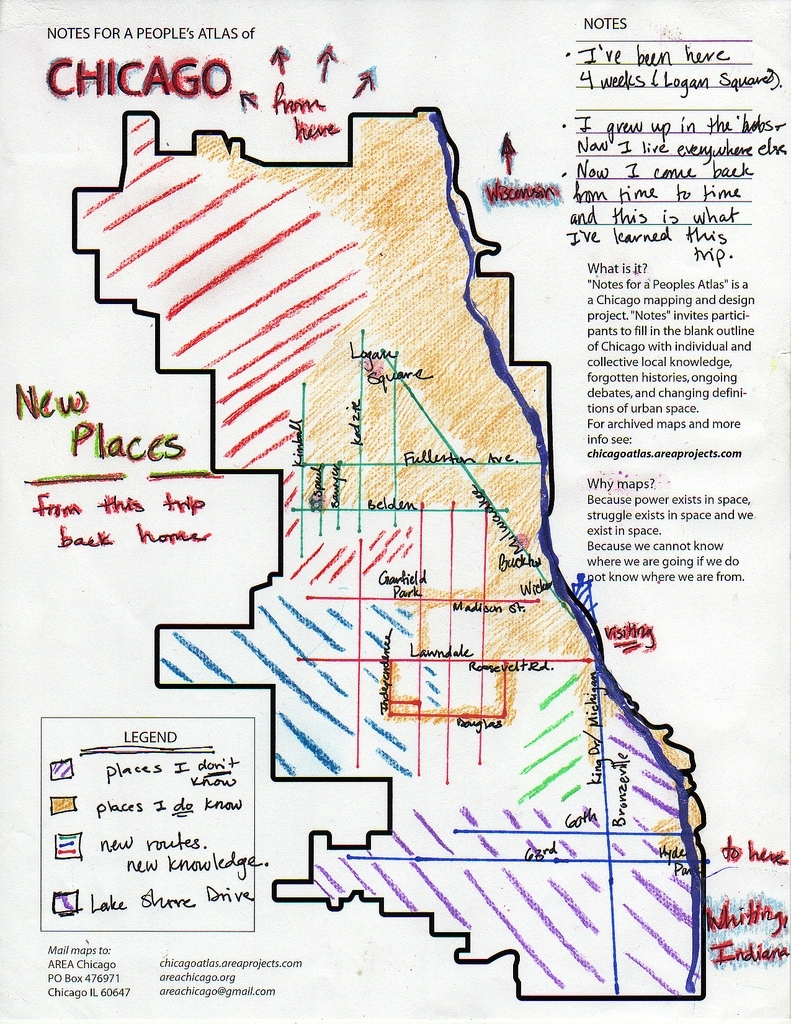 NOTES FOR A PEOPLE'S ATLAS of
CHICAGO
from
here
NOTES
· I've been here
4 weeks (Logan Square).
· I grew up in the 'burbs-
Now I live everywhere else
· Now I come back
from time to time
and this is what
I've learned this
trip.
Wisconsin
What is it?
"Notes for a Peoples Atlas" is a
a Chicago mapping and design
project. "Notes" invites partici-
pants to fill in the blank outline
of Chicago with individual and
collective local knowledge,
forgotten histories, ongoing
debates, and changing defini-
tions of urban space.
For archived maps and more
info see:
chicagoatlas.areaprojects.com
Why maps?
Because power exists in space,
struggle exists in space and we
exist in space.
Because we cannot know
where we are going if we do
not know where we are from.
New
Places
from this trip
back home
Logan
Square
Kimball
Kedzie
Sawyer
Fullerton Ave.
Belden
Milwaukee
Bucktwn
Wicker
Garfield
Park
Madison St.
visiting
Lawndale
Roosevelt Rd.
Independence
Douglas
King Dr/Michigan
Bronzeville
60th
63rd
Hyde
Park
to here
Whiting,
Indiana
LEGEND
places I don't
know
places I do know
new routes.
new knowledge.
Lake Shore Drive
Mail maps to:
AREA Chicago
PO Box 476971
Chicago IL 60647
chicagoatlas.areaprojects.com
areachicago.org
areachicago@gmail.com